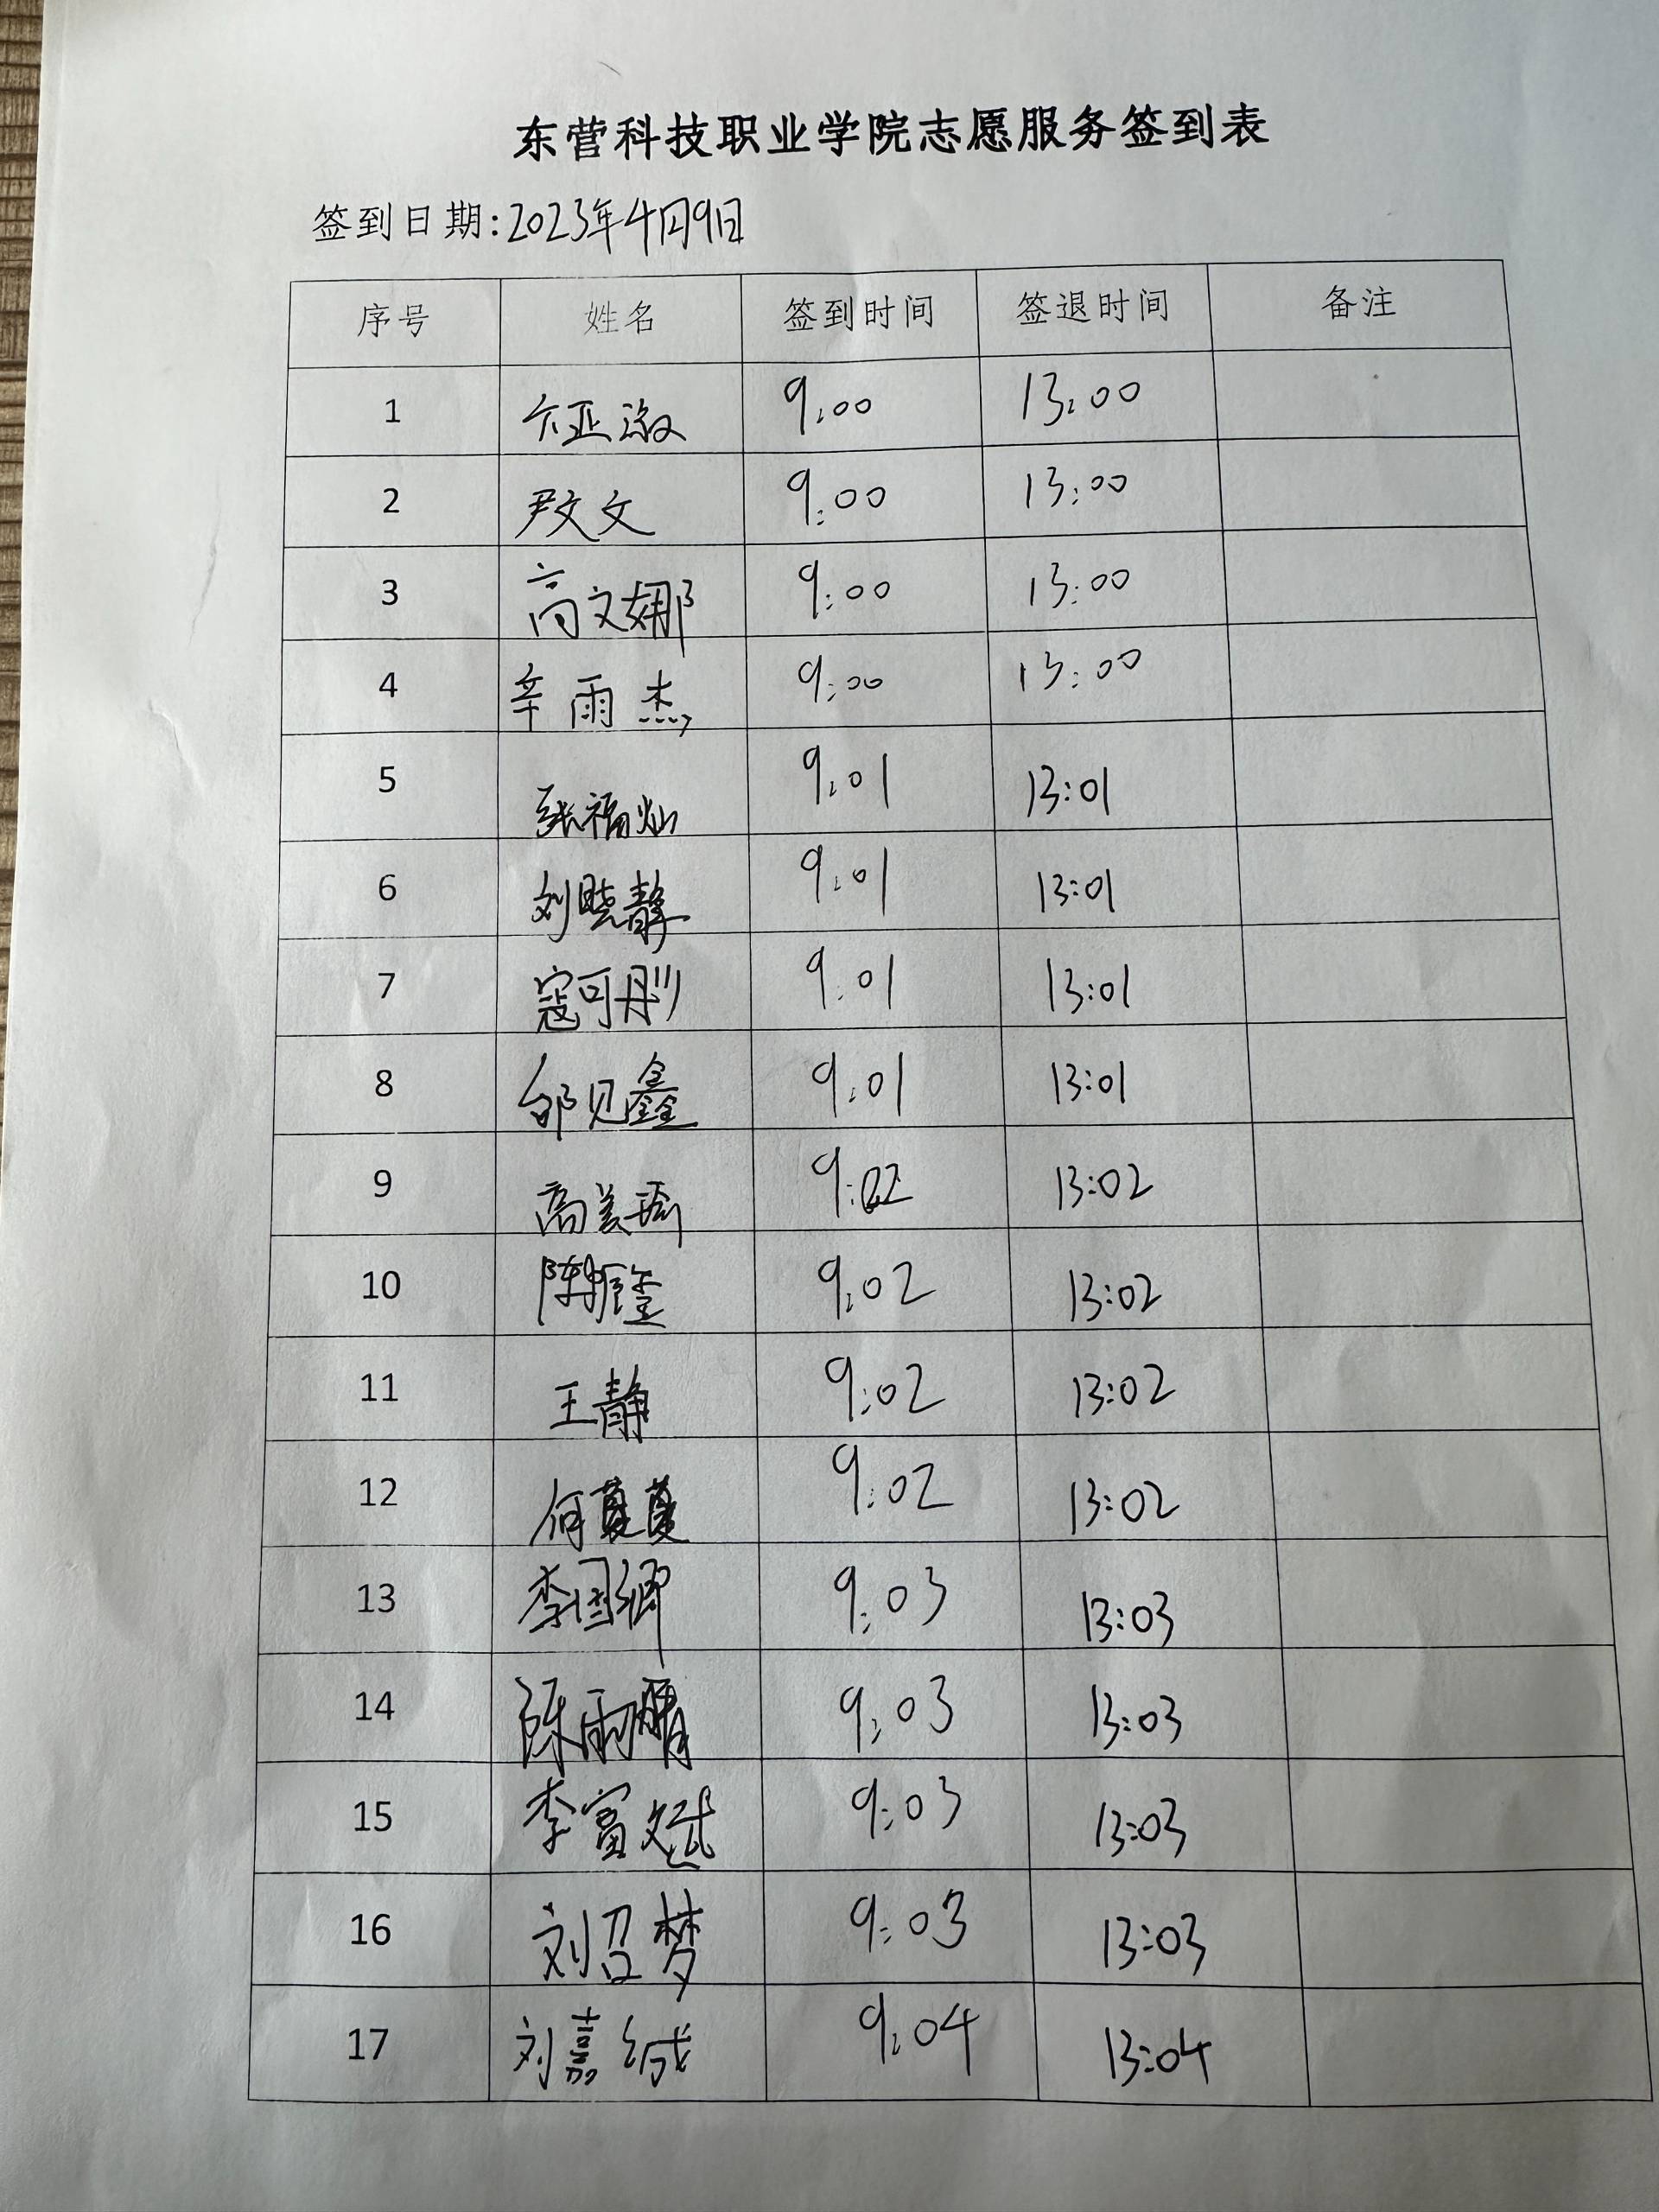 东营科技职业学院志愿服务签到表
签到日期:2023年4月9日
序号 姓名 签到时间 签退时间 备注
1 亚 9:00 13:00
2 尹文文 9:00 13:00
3 高文娜 9:00 13:00
4 辛雨杰 9:00 13:00
5 张福灿 9:01 13:01
6 刘晓静 9:01 13:01
7 寇可彤 9:01 13:01
8 见鑫 9:01 13:01
9 高美瑜 9:02 13:02
10 陈 9:02 13:02
11 王静 9:02 13:02
12 何 9:02 13:02
13 李国卿 9:03 13:03
14 陈雨晴 9:03 13:03
15 李富斌 9:03 13:03
16 刘召梦 9:03 13:03
17 刘嘉诚 9:04 13:04